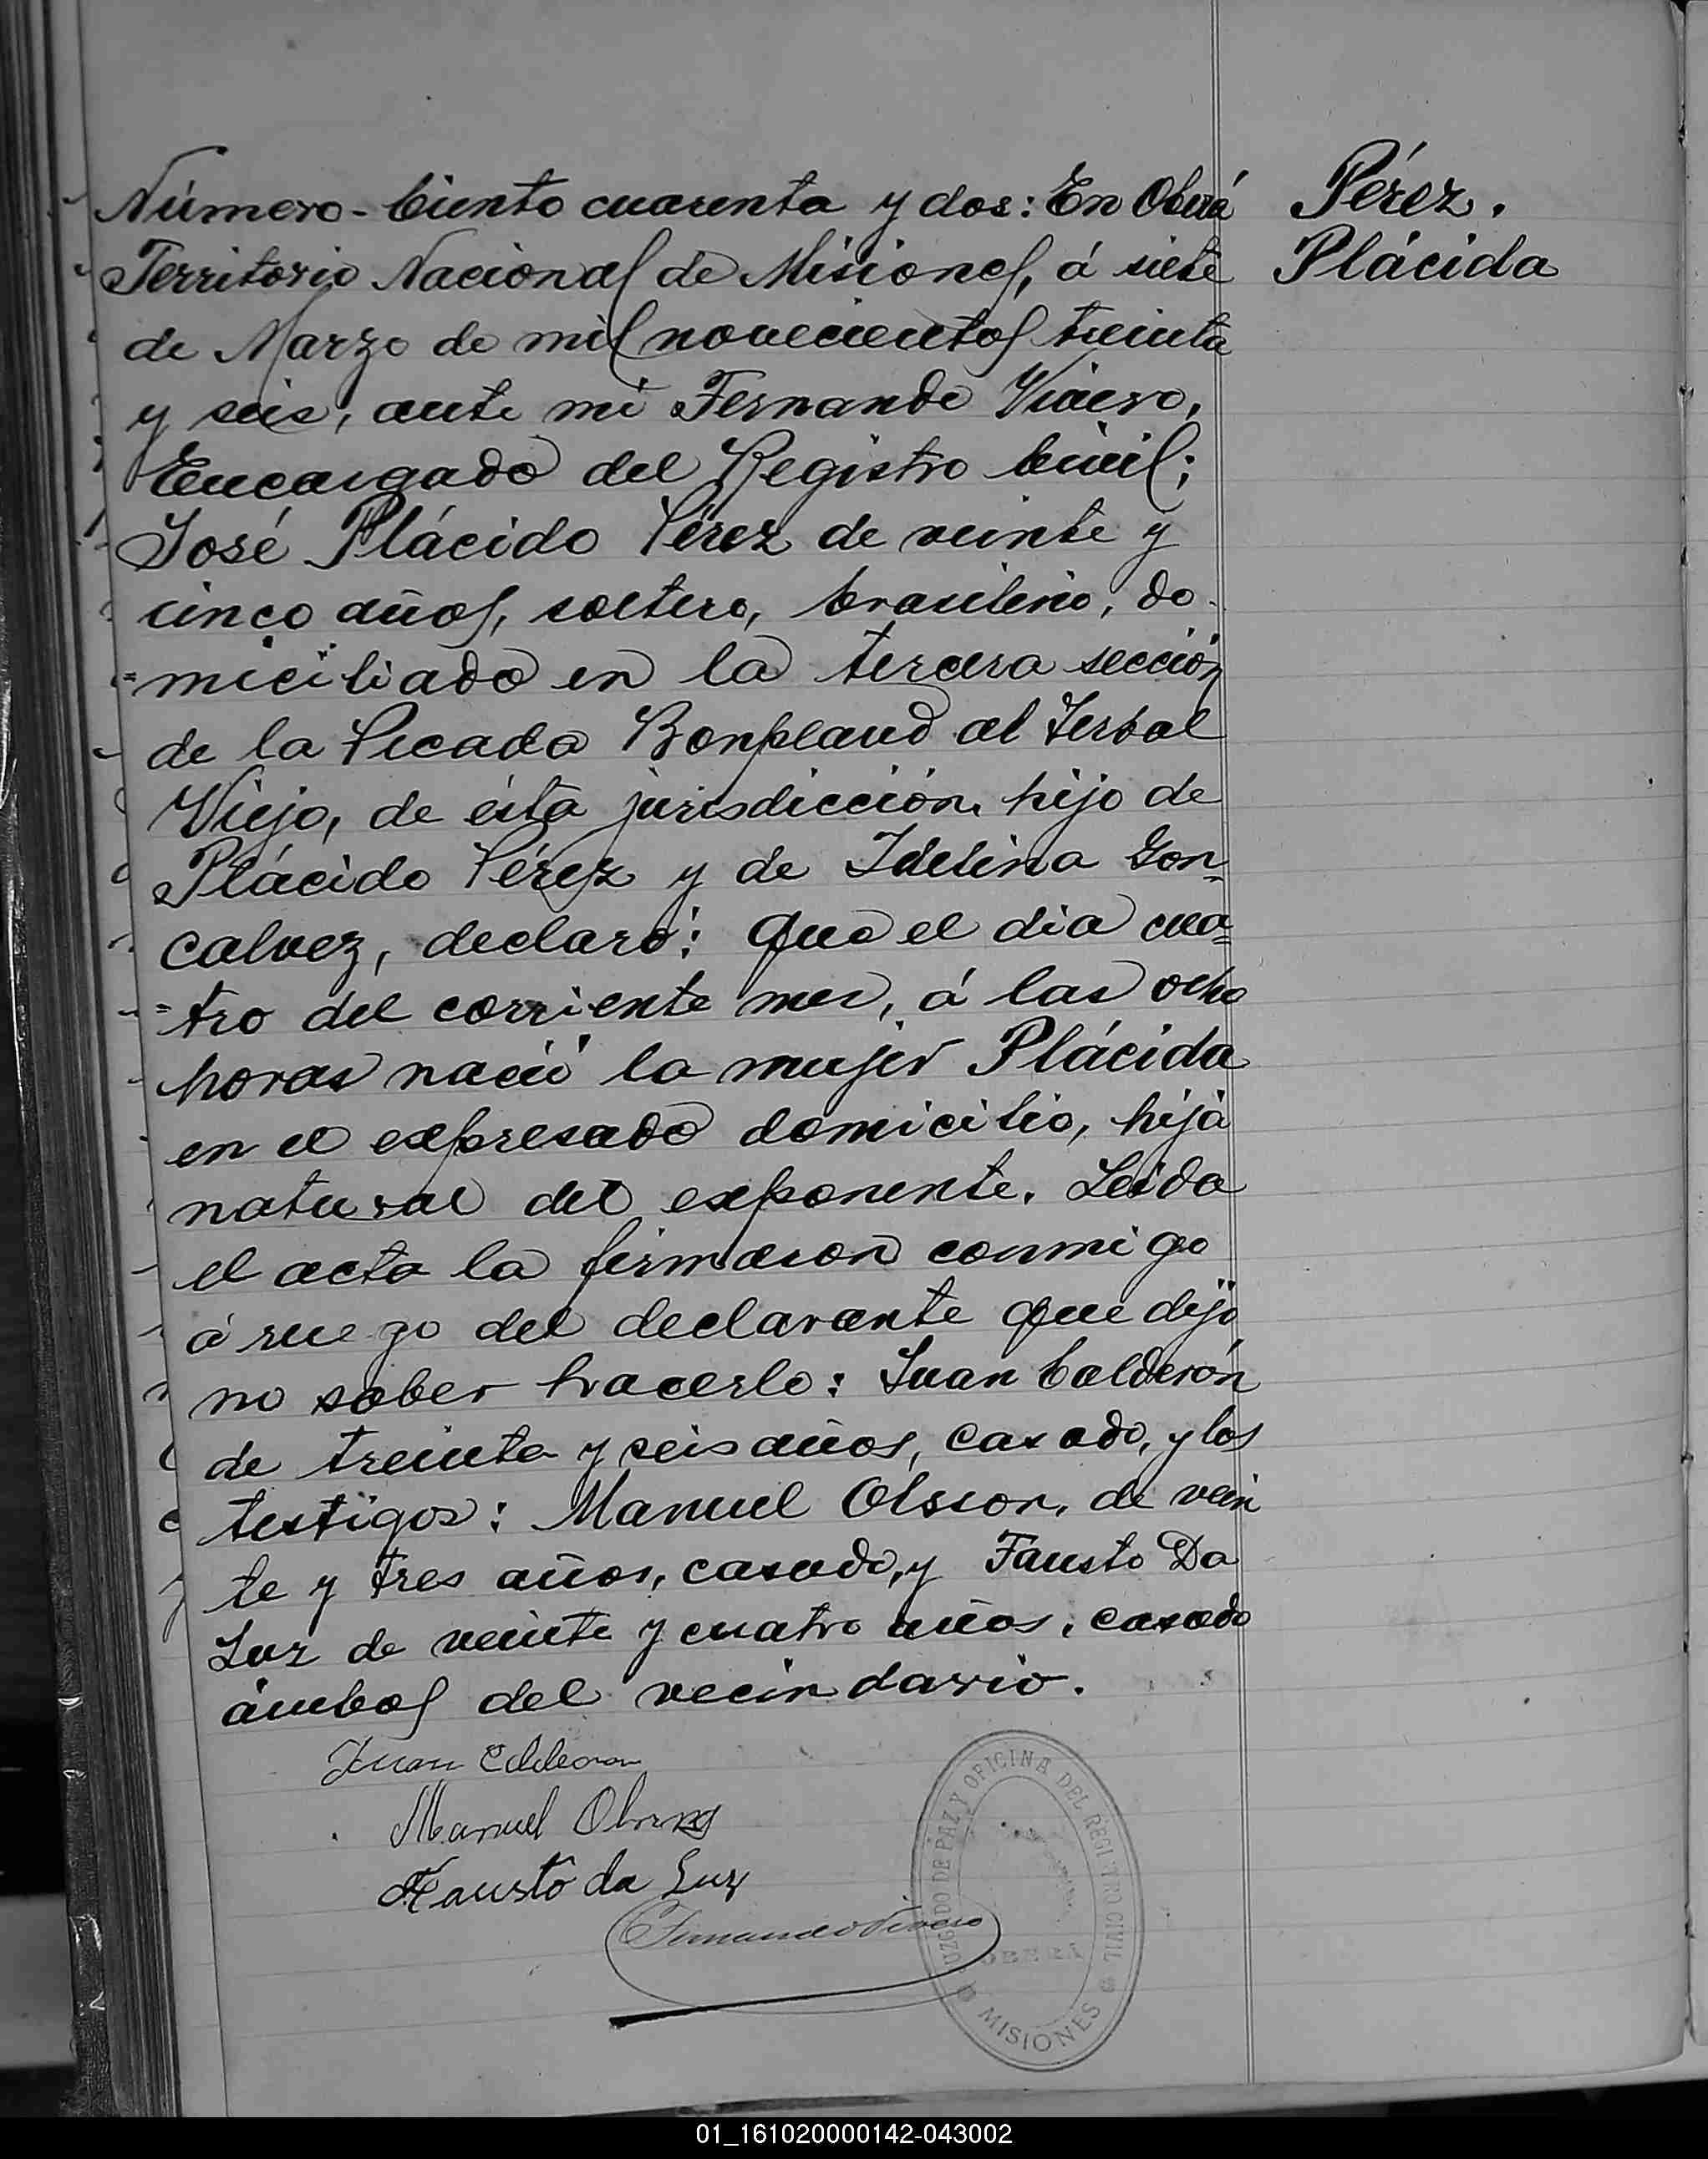 Número - Ciento cuarenta y dos: En Oberá
Territorio Nacional de Misiones, á siete
de Marzo de mil novecientos treinta
y seis, ante mi Fernando Vivero,
Encargado del Registro Civil;
José Plácido Pérez de veinte y
cinco años, soltero, brasileño, do-
=miciliado en la tercera sección
de la Picada Bonpland al Yerbal
Viejo, de ésta jurisdicción, hijo de
Plácido Pérez y de Idelina Gon=
calvez, declaró: Que el dia cua=
=tro del corriente mes, á las ocho
horas nació la mujer Plácida
en el expresado domicilio, hija
natural del exponente. Leida
el acta la firmaron conmigo
á ruego del declarante que dijo
no saber hacerlo: Juan Calderón
de treinta y seis años, casado, y los
testigos: Manuel Olsson, de vein
te y tres años, casado, y Fausto Da
Luz de veinte y cuatro años, casado
ámbos del vecindario.
Pérez.
Plácida
Juan
Manuel
Fausto da Luz
Fernando Vivero
JUZGADO DE PAZ Y OFICINA DEL REGISTRO CIVIL
OBERÁ
MISIONES
01_161020000142-043002